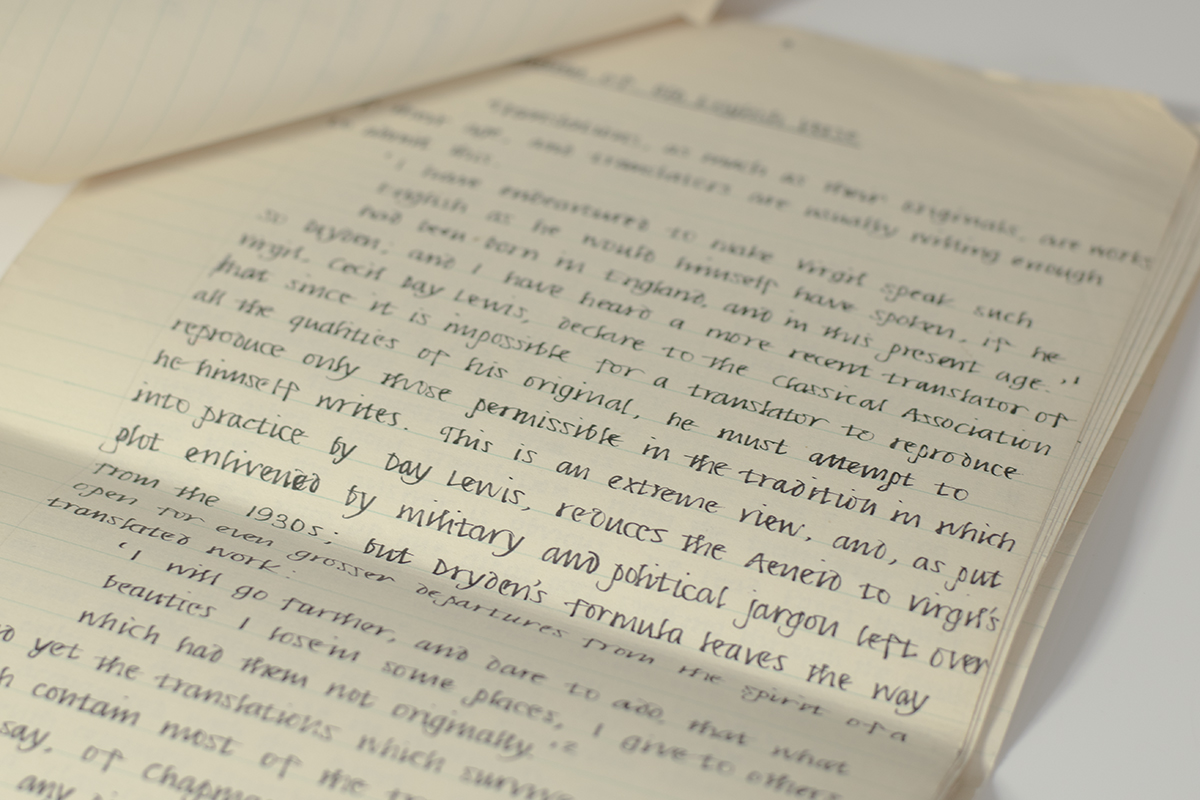 of an English
Translations, as much as their originals, are works
age, and translators are usually willing enough
about this.
'I have endeavoured to make Virgil speak such
English as he would himself have spoken, if he
had been born in England, and in this present age.'¹
So Dryden; and I have heard a more recent translator of
Virgil, Cecil Day Lewis, declare to the Classical Association
that since it is impossible for a translator to reproduce
all the qualities of his original, he must attempt to
reproduce only those permissible in the tradition in which
he himself writes. This is an extreme view, and, as put
into practice by Day Lewis, reduces the Aeneid to Virgil's
plot enlivened by military and political jargon left over
from the 1930s; but Dryden's formula leaves the way
open for even grosser departures from the spirit of a
translated work:
'I will go further, and dare to add, that what
beauties I lose in some places, I give to others
which had them not originally.'²
yet the translations which survive
contain most of the
say, of
any